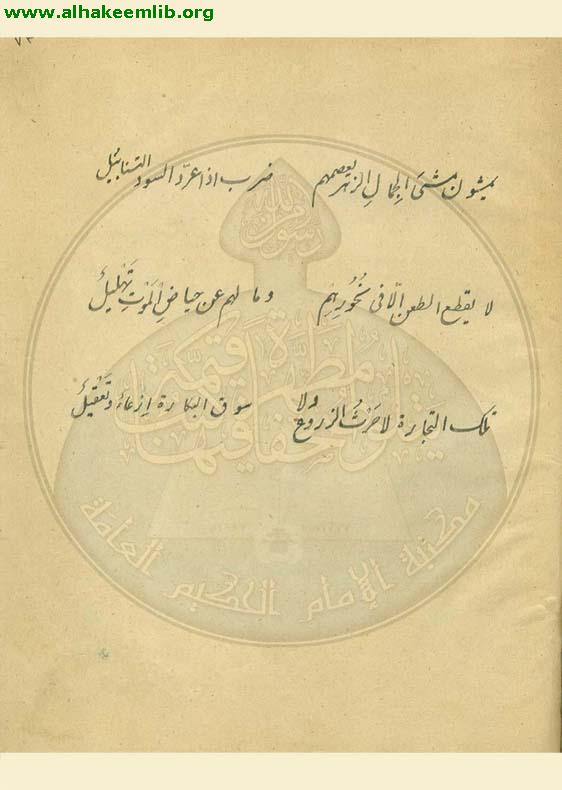 www.alhakeemlib.org
يمشون مشى الجمالِ الزهر يعصمهم ضرب اذا عرّد السود التنابيل
لا يقطع الطعن الّا فى نُحُورِهِم وما لهم عن حياضِ الْمَوْتِ تَهْلِيلُ
تلك التجارة لا حَرْثُ الزروع ولا سوق البكارة اِرْعاءُ وتَعْقِيلُ
رسول الله
مكتبة الإمام الحكيم العامة